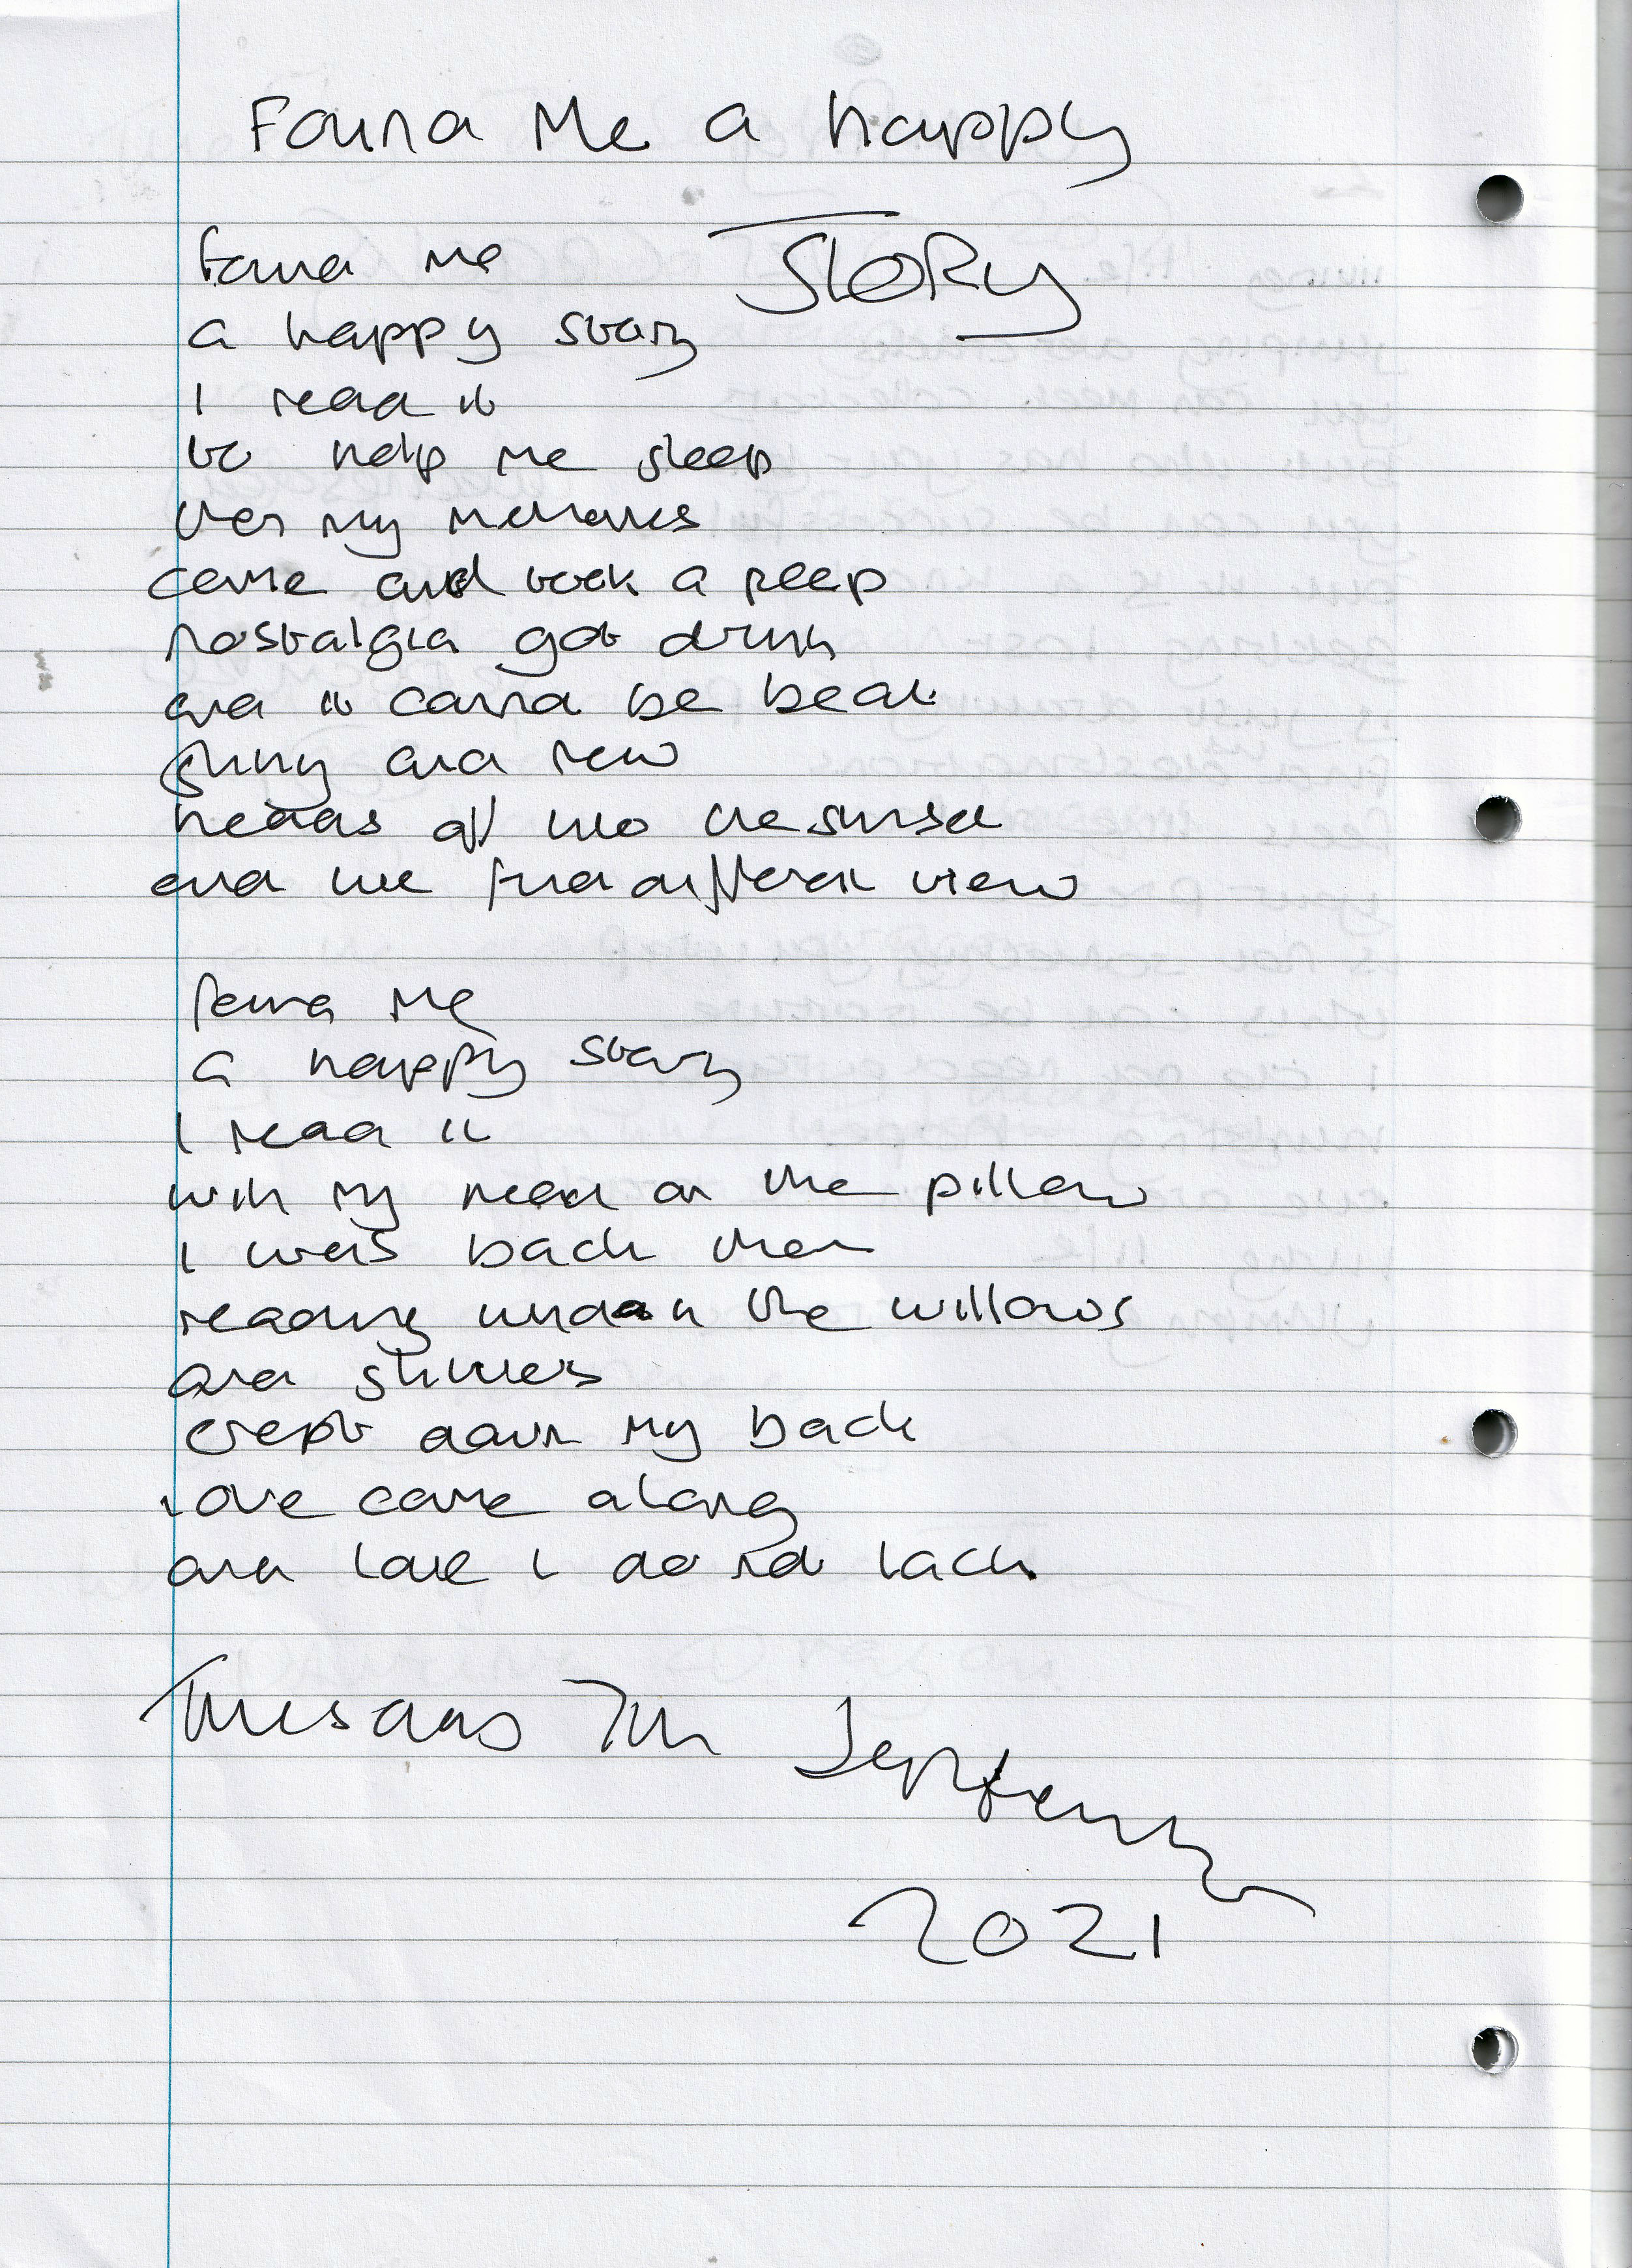 Found Me a happy
Story
found me
a happy story
I read it
to help me sleep
then my memories
came and took a peep
nostalgia got drunk
and it could be beat
shiny and new
heads off into the sunset
and we find different view
found me
a happy story
I read it
with my head on the pillow
I was back then
reading under the willows
and shivers
crept down my back
love came along
and love I do not lack
Tuesday 7th September
2021